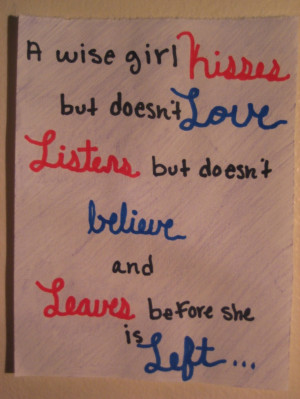 A wise girl kisses
but doesn't Love
Listens but doesn't
believe
and
Leaves before she
is Left...